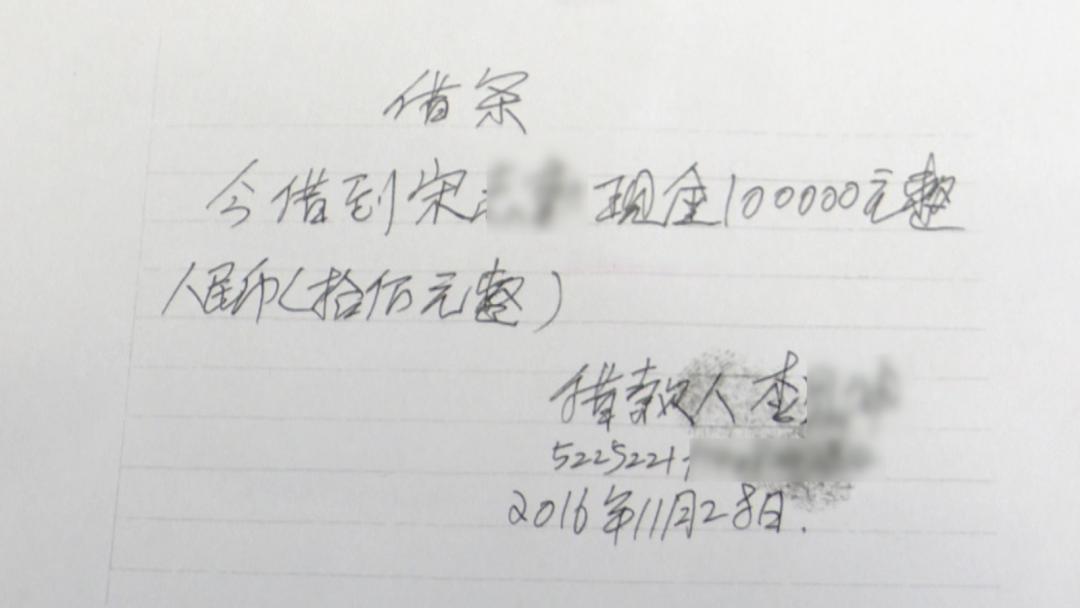 借条
今借到宋 现金100000元整
人民币(拾佰元整)
借款人
5225221
2016年11月28日.